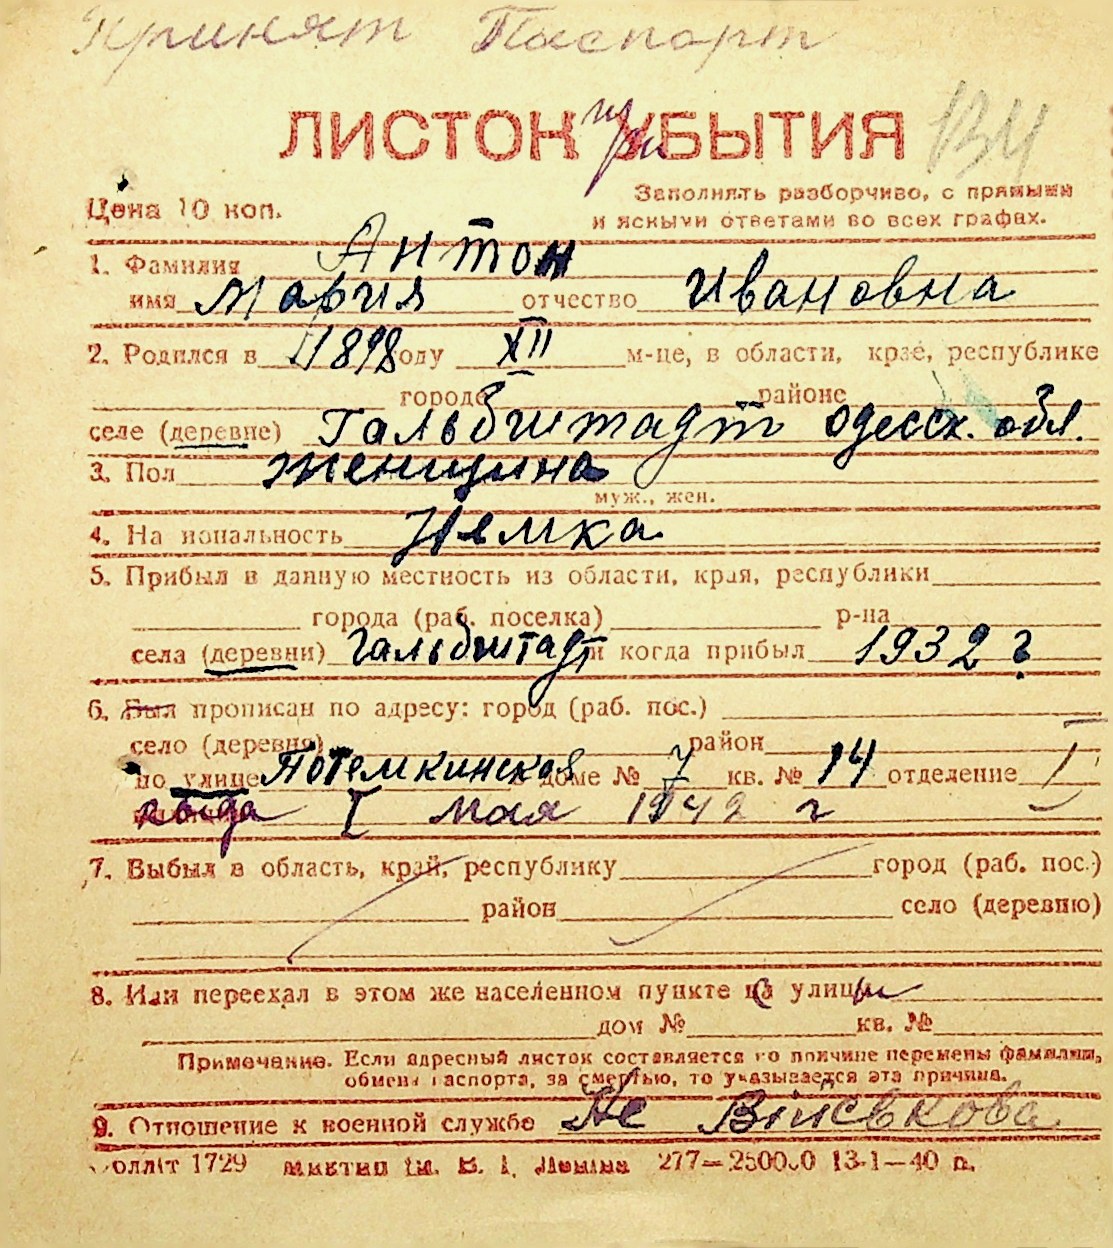 Принят Паспорт
ЛИСТОК при УБЫТИЯ 134
Цена 10 коп.
Заполнять разборчиво, с прямыми
и ясными ответами во всех графах.
1. Фамилия Антон
имя Мария отчество Ивановна
2. Родился в 1898 году XII м-це, в области, крае, республике
городе районе
селе (деревне) Гальбштадт одесск. обл.
3. Пол женщина
муж., жен.
4. Национальность Немка
5. Прибыл в данную местность из области, края, республики
города (раб. поселка) р-на
села (деревни) Гальбштадт и когда прибыл 1932 г
6. Был прописан по адресу: город (раб. пос.)
село (деревня) район
по улице Потемкинская в доме № 7 кв. № 14 отделение I
I мая 1942 г
7. Выбыл в область, край, республику город (раб. пос.)
район село (деревню)
8. Или переехал в этом же населенном пункте на улицу
дом № кв. №
Примечание. Если адресный листок составляется по причине перемены фамилии,
обмена паспорта, за смертью, то указывается эта причина.
9. Отношение к военной службе Не Війсвкова
1729 им. В. І. Леніна 277—250000 13-1—40 п.